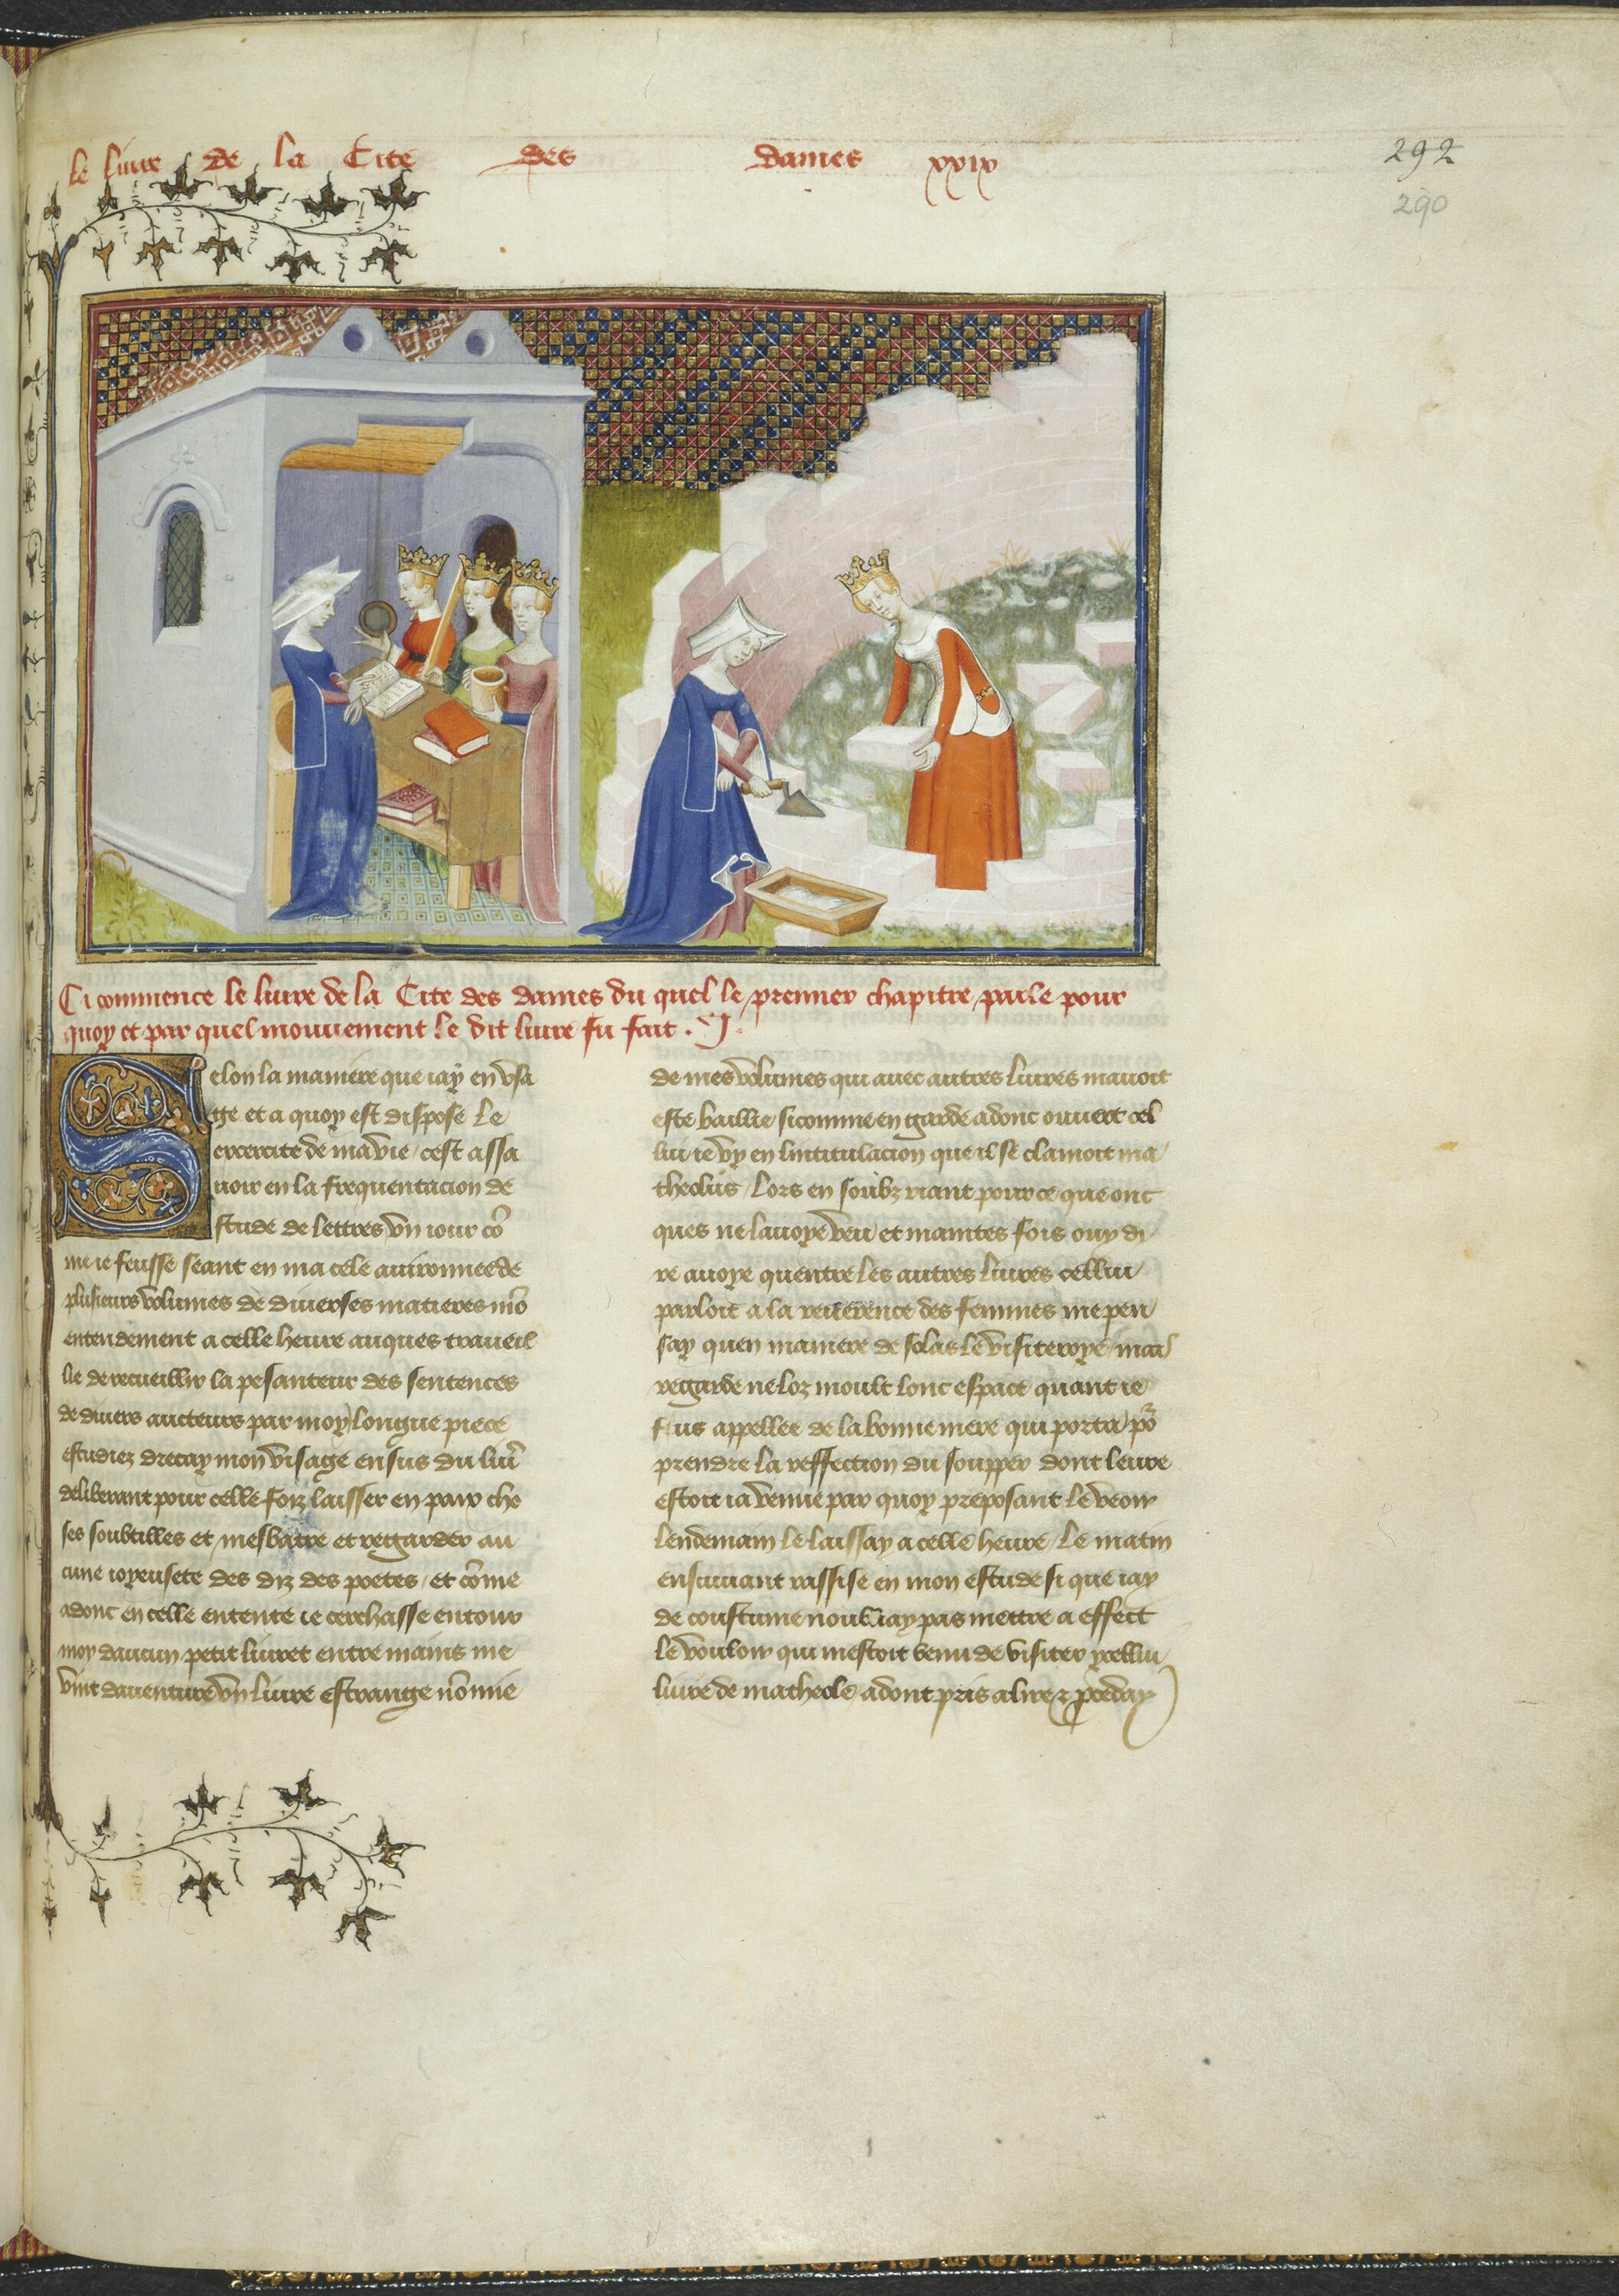 le livre de la Cite des dames xxix
292
290
Ci commence le livre de la Cite des dames du quel le premier chapitre parle pour
quoy et par quel mouvement le dit livre fu fait . .I.
Selon la maniere que iay en usa
ge et a quoy est dispose le
excercite de ma vie / cest assa
uoir en la frequentacion de
stude de lettres vn iour cõ
me ie feusse seant en ma cele auironnee de
plusieurs volumes de diuerses matieres mõ
entendement a celle heure auques traueil
lie de recueillir la pesanteur des sentences
de diuers aucteurs par moy longue piece
estudiez drecay mon visage ensus du liure
deliberant pour celle foiz laisser en paix cho
ses soubtilles et mesbatre et regarder au
cune ioyeusete des diz des poetes / et cõme
adonc en celle entente ie cerchasse entour
moy daucun petit liuret entre mains me
vint dauenture vn liure estrange nõmie
de mes volumes qui auec autres liures mauoit
este baillie sicomme en garde adonc ouuert cel
lui ie vy en lintitulacion que il se clamoit ma
theolus / Lors en soubz riant pour ce que onc
ques ne lauoye veu et maintes fois ouy di
re auoye quentre les autres liures cellui
parloit a la reuerence des femmes me pen
say quen maniere de solas le visiteroye / mais
regarde ne loz moult lonc espace quant ie
fus appellee de la bonne mere qui porta põ
prendre la reffection du soupper dont leure
estoit ia venue par quoy preposant le veoir
lendemain le laissay a celle heure / Le matin
ensuiuant rassise en mon estude si que iay
de coustume noubliay pas mettre a effect
le vouloir qui mestoit venu de visiter ycellui
liure de matheole adont pris a lire z proceday